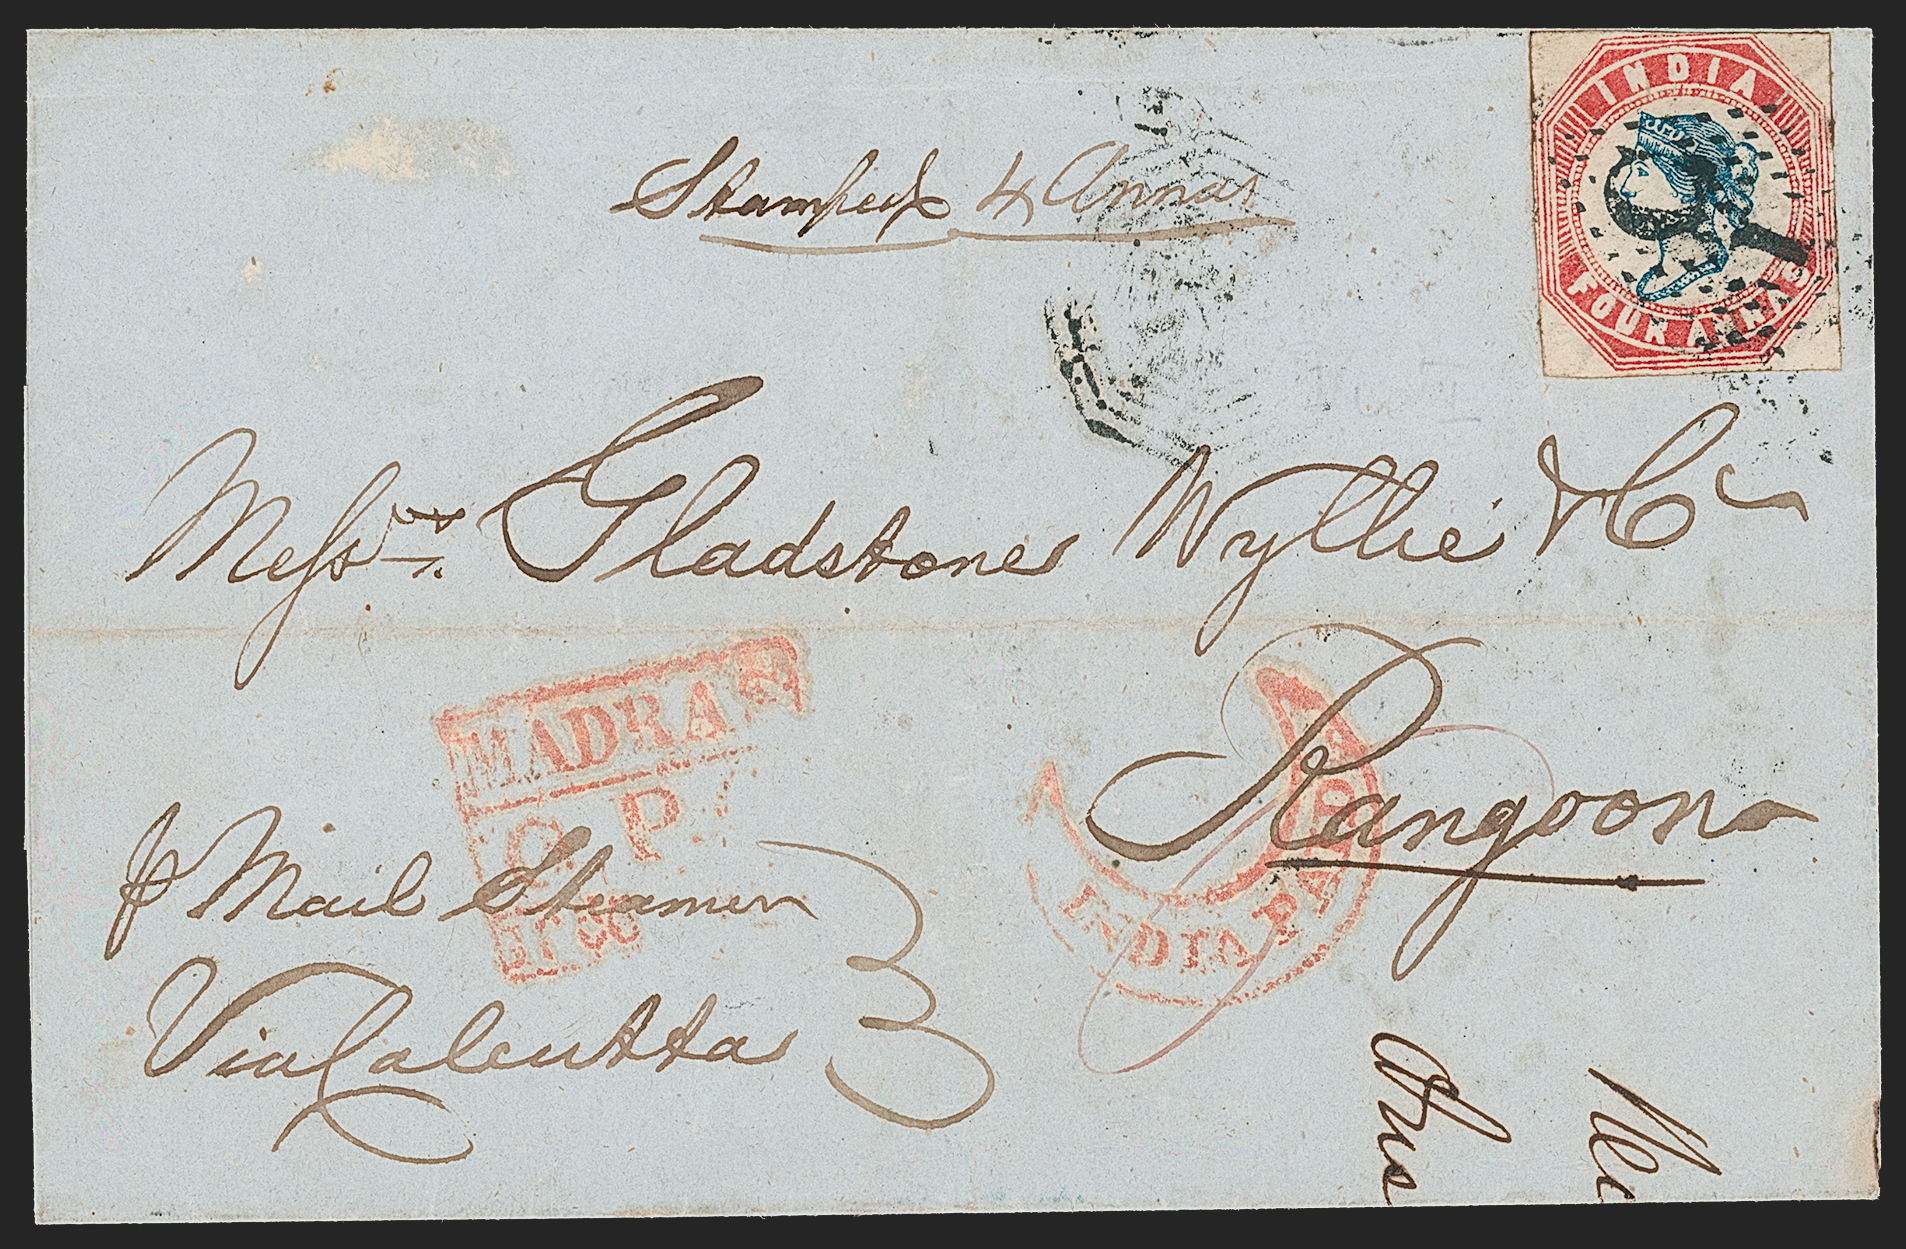 Stamped 4 Annas
INDIA
FOUR ANNAS
Messrs. Gladstone Wyllie & Co
Rangoon
MADRAS
G. P.
INDIA PAID
p Mail Steamer
Via Calcutta